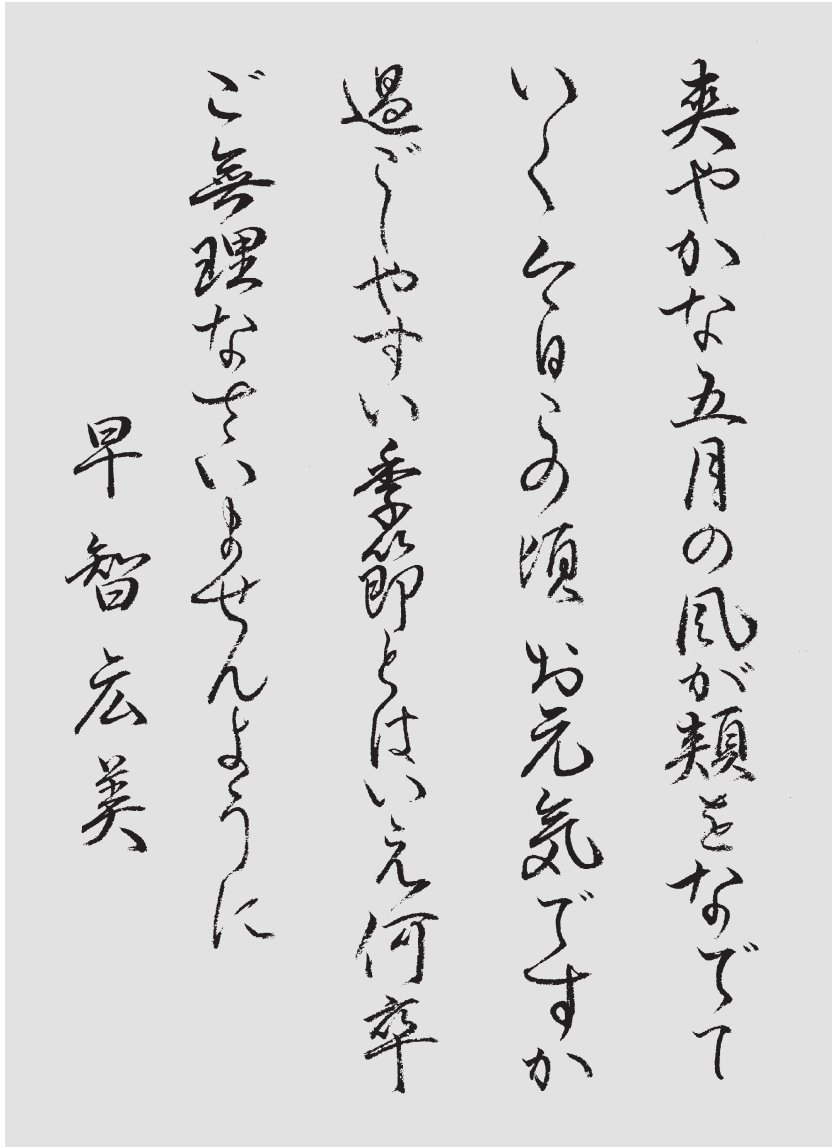 爽やかな五月の風が頬をなでて
いく今日この頃 お元気ですか
過ごしやすい季節とはいえ何卒
ご無理なさいませんように
早智広美